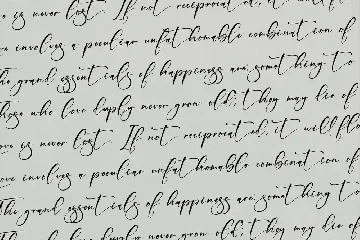 is never lost If not reciprocated, it
involves a peculiar unfathomable combination of
The grand essentials of happiness are: something to
Those who love deeply never grow old; they may die of
Love is never lost If not reciprocated, it will flow
Love involves a peculiar unfathomable combination of
The grand essentials of happiness are: something to
who love deeply never grow old; they may die of